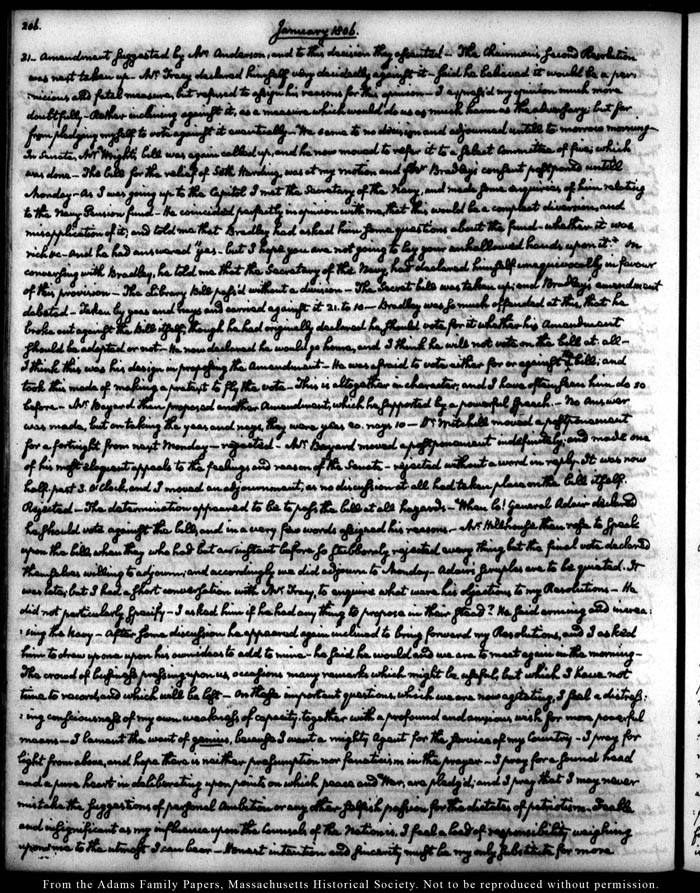 206.
January 1806.
31 - Amendment suggested by Mr. Anderson, and to this decision they assented - The Chairman's second Resolution
was next taken up - Mr. Tracy declared himself very decidedly against it - said he believed it would be a per-
nicious and fatal measure, but refused to assign his reasons for this opinion - I express'd my opinion much more
doubtfully - Rather inclining against it, as a measure which would do us as much harm as the adversary: but far
from pledging myself to vote against it eventually - We came to no decision and adjourned untill to morrow morning -
In Senate, Mr. Wright's bill was again called up, and he now moved to refer it to a select Committee of five; which
was done - The bill for the relief of Seth Harding, was at my motion and Mr. Bradley's consent postponed untill
Monday - As I was going up to the Capitol I met the Secretary of the Navy, and made some enquiries of him relating
to the Navy Pension fund - He coincided perfectly in opinion with me, that this would be a compleat diversion, and
misapplication of it; and told me that Bradley had asked him some questions about the fund - whether it was
rich &c - And he had answered "yes - but I hope you are not going to lay your unhallowed hands upon it." On
conversing with Bradley, he told me that the Secretary of the Navy, had declared himself unequivocally in favour
of this provision - The Library Bill pass'd without a division - The Secret bill was taken up; and Bradley's amendment
debated - Taken by yeas and nays and carried against it 21. to 10 - Bradley was so much offended at this, that he
broke out against the Bill itself, though he had originally declared he should vote for it whether his Amendment
should be adopted or not - He now declared he would go home, and I think he will not vote on the bill at all -
I think this was his design in proposing the Amendment - He was afraid to vote either for or against the bill; and
took this mode of making a pretext to fly the vote - This is altogether in character; and I have often seen him do so
before - Mr. Bayard then proposed another Amendment, which he supported by a powerful speech. - No answer
was made, but on taking the yeas and nays, they were yeas 20. nays 10 - Dr. Mitchill moved a postponement
for a fortnight from next Monday - rejected - Mr. Bayard moved a postponement indefinitely; and made one
of his most eloquent appeals to the feelings and reason of the Senate - rejected without a word in reply. It was now
half past 3. O'Clock and I moved an adjournment, as no discussion at all had taken place on the bill itself.
Rejected - The determination appeared to be to pass the bill at all hazards - When lo! General Adair declared
he should vote against the bill, and in a very few words assigned his reasons. - Mr. Hillhouse then rose to speak
upon the bill, when they who had but an instant before so stubbornly rejected every thing but the final vote declared
themselves willing to adjourn; and accordingly we did adjourn to Monday - Adair's scruples are to be quieted. It
was late; but I had a short conversation with Mr. Tracy, to enquire what were his objections to my Resolutions - He
did not particularly specify - I asked him if he had any thing to propose in their stead? He said arming and increa:
:sing the Navy - After some discussion he appeared again inclined to bring forward my Resolutions, and I asked
him to draw up one upon his own ideas to add to mine - he said he would and we are to meet again in the morning -
The crowd of business pressing upon us, occasions many remarks which might be useful, but which I have not
time to record, and which will be lost - On these important questions, which we are now agitating, I feel a distress:
:ing consciousness of my own weakness of capacity, together with a profound and anxious wish for more powerful
means - I lament the want of genius, because I want a mighty Agent for the service of my Country - I pray for
light from above, and hope there is neither presumption nor fanaticism in the prayer - I pray for a sound head
and a pure heart in deliberating upon points on which peace and War, are pledg'd; and I pray that I may never
mistake the suggestions of personal Ambition or any other selfish passion for the dictates of patriotism. Feeble
and insignificant as my influence upon the Counsels of the Nation is, I feel a load of responsibility weighing
upon me to the utmost I can bear - Honest intention and sincerity must be my only substitute for more
From the Adams Family Papers, Massachusetts Historical Society. Not to be reproduced without permission.